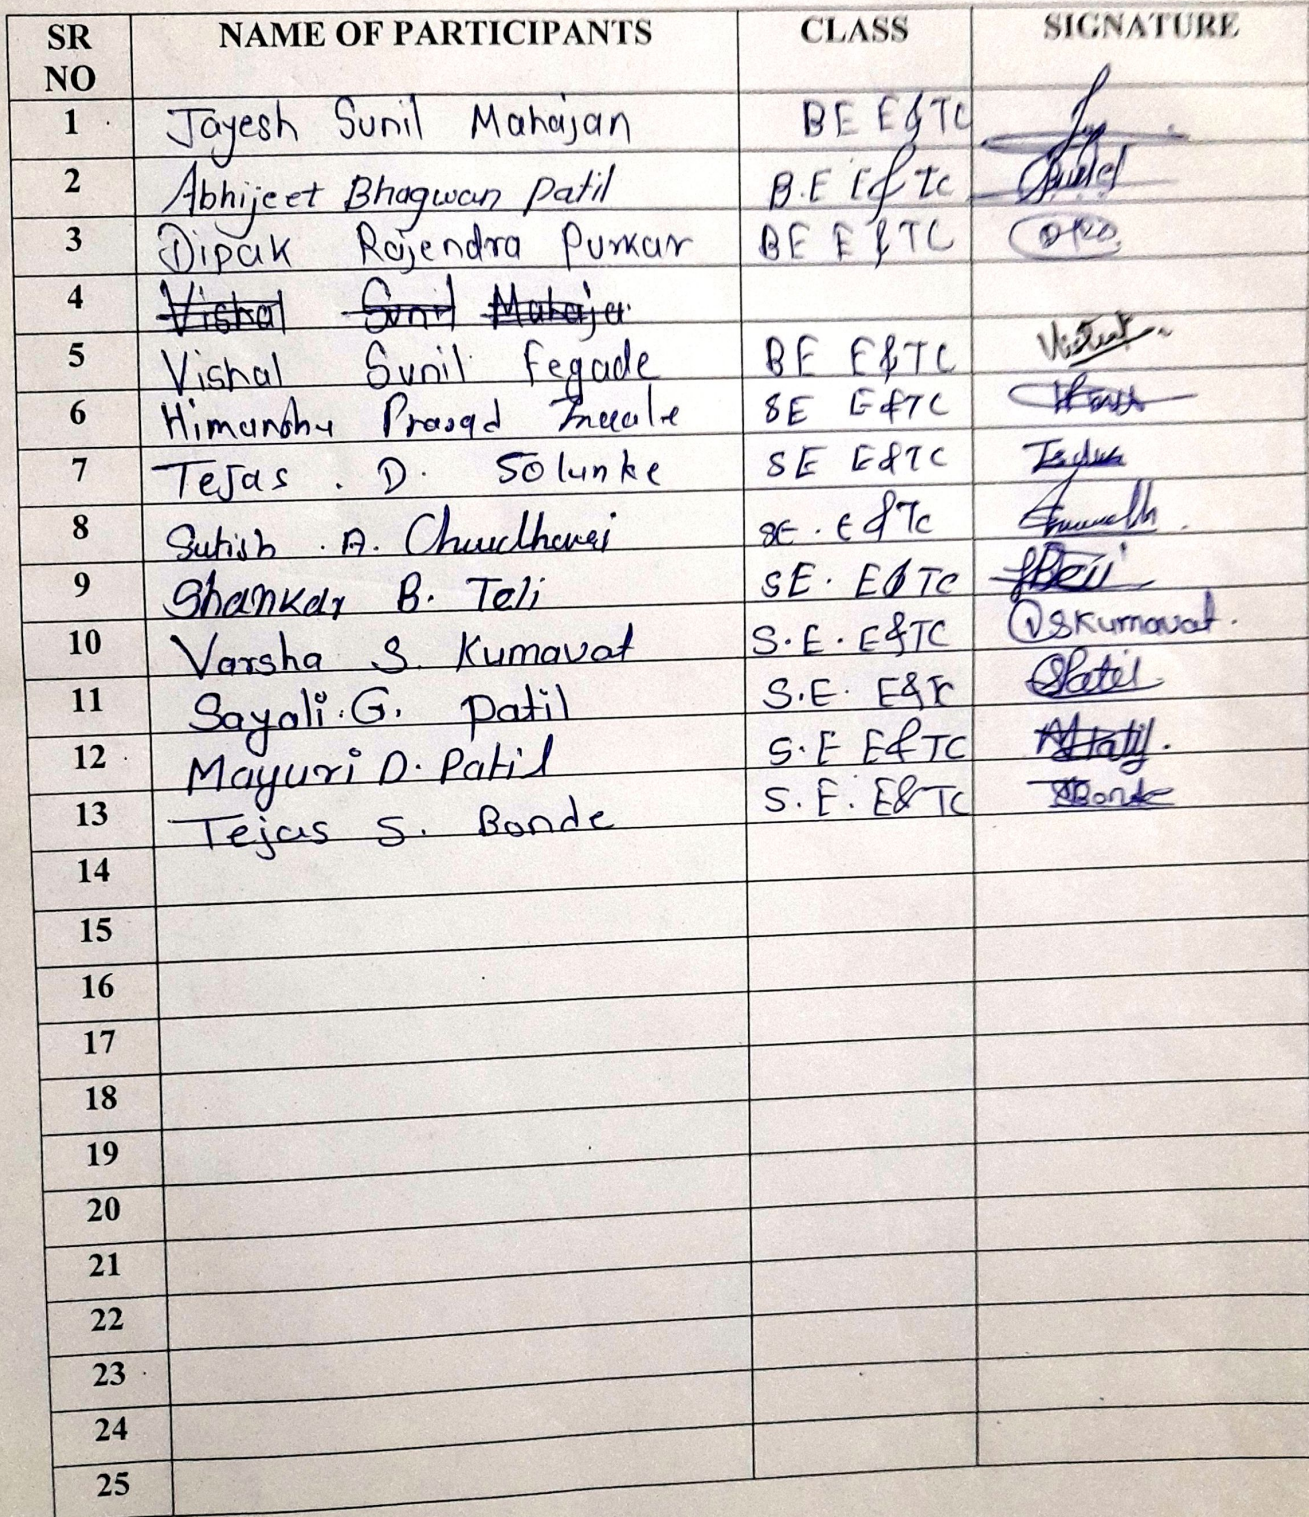 SR NO NAME OF PARTICIPANTS CLASS SIGNATURE
1 Jayesh Sunil Mahajan BE E&TC
2 Abhijeet Bhagwan Patil B.E E&TC
3 Dipak Rajendra Purkar BE E&TC
4 Vishal Sunil Mahaja
5 Vishal Sunil Fegade BE E&TC
6 Himanshu Prasad SE E&TC
7 Tejas . D. Solunke SE E&TC
8 Satish . A. Chaudhari SE . E&TC
9 Shankar B. Teli SE. E&TC
10 Varsha S. Kumavat S.E. E&TC VSKumavat.
11 Sayali.G. Patil S.E. E&TC
12 Mayuri D. Patil S.E E&TC
13 Tejas S. Bonde S.E. E&TC TSBonde
14
15
16
17
18
19
20
21
22
23
24
25